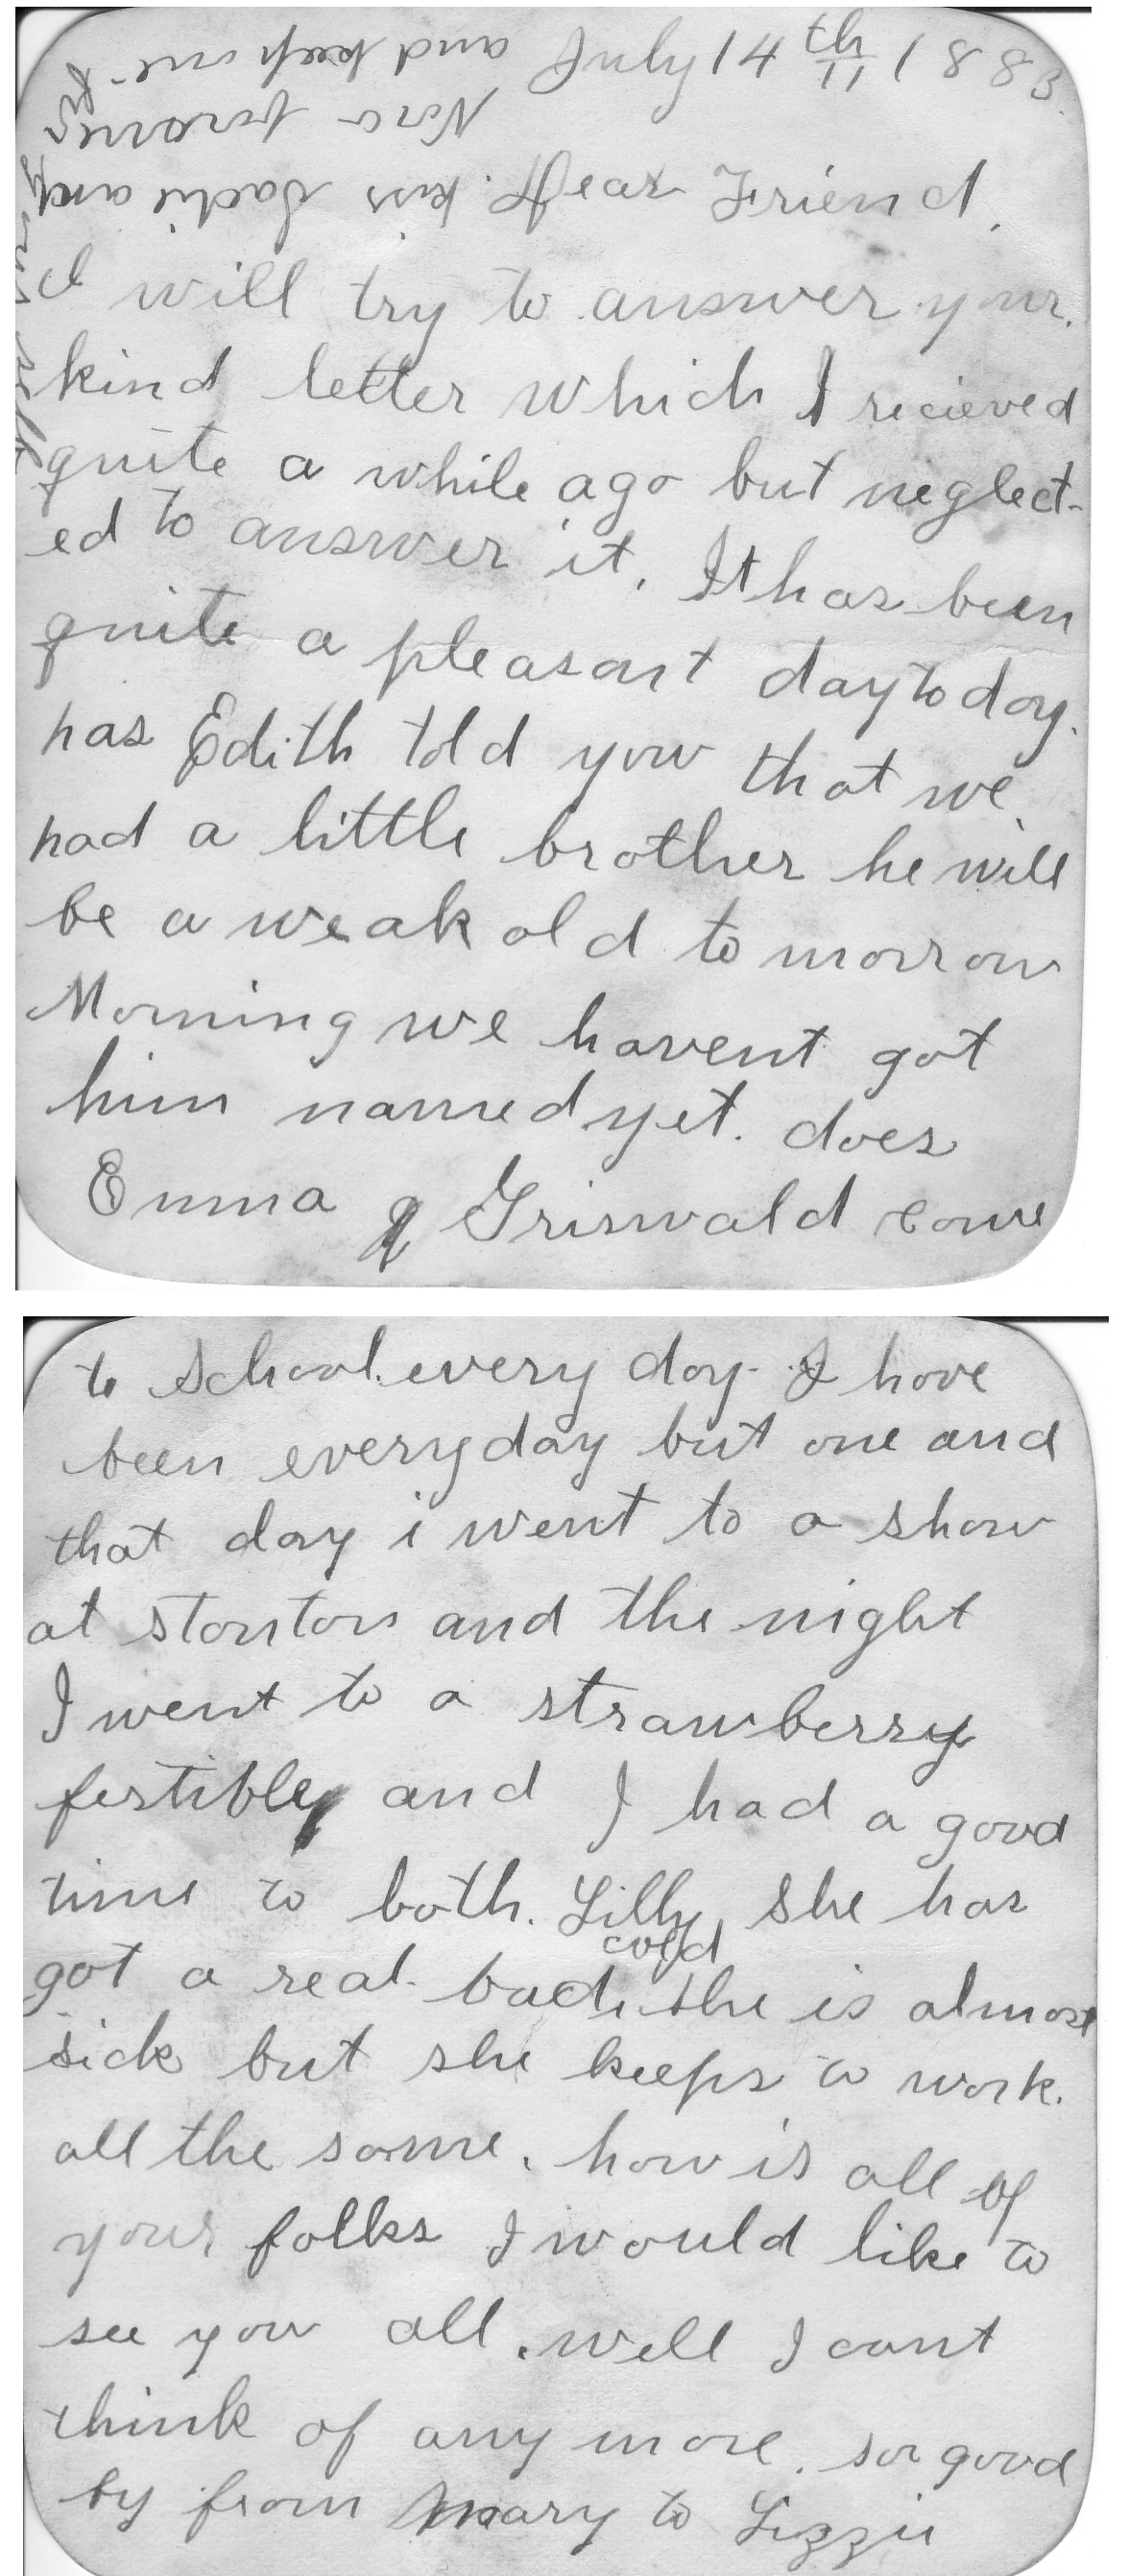 July 14th 1883.
Dear Friend,
I will try to answer your
kind letter which I recieved
quite a while ago but neglect-
ed to answer it. It has been
quite a pleasant day to day.
has Edith told you that we
had a little brother he will
be a weak old to morrow
Morning we havent got
him named yet. does
Emma Griswald come
to School every day. I have
been every day but one and
that day i went to a show
at stanton and the night
I went to a strawberry
festible and I had a good
time to both. Lilly, she has
got a real bad cold she is almost
sick but she keeps to work.
all the same. how is all of
your folks I would like to
see you all. well I cant
think of any more. so good
by from Mary to Lizzie
kiss Sadie and
Nora for me
and keep one for
your self